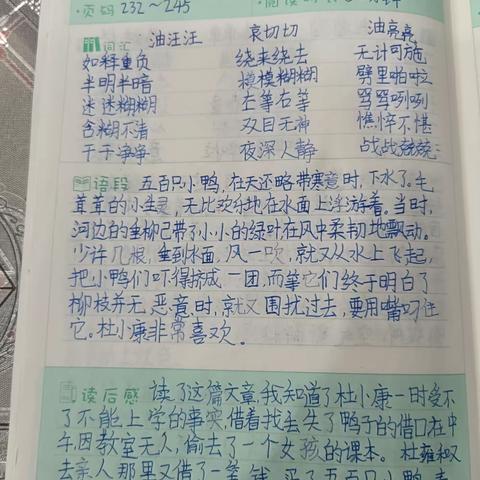 ·页码 232～245
词汇 油汪汪 哀切切 油亮亮
如释重负 绕来绕去 无计可施
半明半暗 模模糊糊 劈里啪啦
迷迷糊糊 右等右等 骂骂咧咧
含糊不清 双目无神 憔悴不堪
干干净净 夜深人静 战战兢兢
语段 五百只小鸭，在天还略带寒意时，下水了。毛
茸茸的小生灵，无比欢乐地在水面上浮游着。当时，
河边的垂柳已带了小小的绿叶在风中柔韧地飘动。
少许几根，垂到水面，风一吹，就又从水上飞起，
把小鸭们吓得挤成一团，而等它们终于明白了
柳枝并无恶意时，就又围扰过去，要用嘴叼住
它。杜小康非常喜欢。
读后感 读了这篇文章，我知道了杜小康一时受不
了不能上学的事实，借着找丢失了鸭子的借口在中
午，因教室无人，偷去了一个女孩的课本。杜雍和又
去亲人那里又借了一笔钱，买了五百只小鸭，